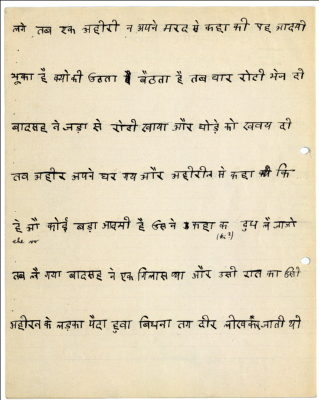 लगे तब एक अहीरी न अपने मरद से कहा की यह आदमी
भूका है क्योकी उठता बैठता है तब चार रोटी भेज दी
बादसह ने जड़ा से रोटी खाया और घोड़े को खवय दी
तब अहीर अपने घर गय और अहीरीन से कहा कि
हे औ कोई बड़ा आदमी है उस ने कहा क दुध ले जाओ
तब ले गया बादसह ने एक गिलास पिया और उसी रात का उसी
अहीरन के लड़का पैदा हुवा बिधना तग दीर लीख कर जाती थी